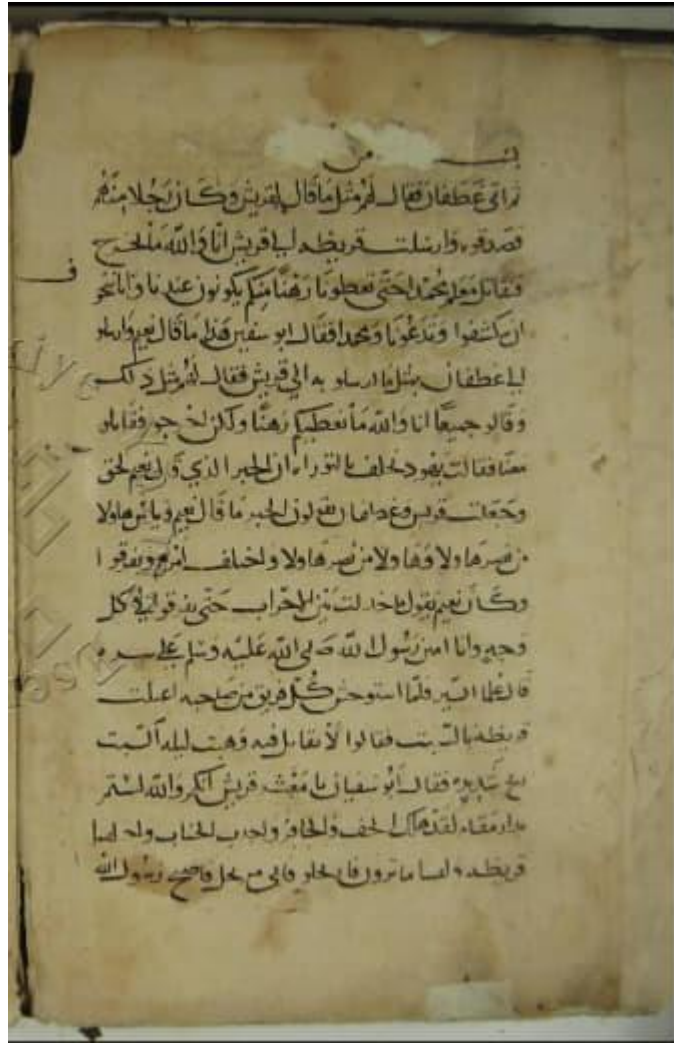 من
ثم اتى غطفان فقال لهم مثل ما قال لقريش وكان رجلا منهم
فصدقوه وارسلت قريظه الي قريش انا والله ما نخرج
فنقاتل معكم محمدا حتى تعطونا رهنا منكم يكونون عندنا فانا نتخوف
ان تنكشفوا وتدعونا ومحمدا فقال ابو سفين هذا ما قال نعيم وارسلو
الي غطفان بمثل ما ارسلو به الي قريش فقال لهم مثل ذلك
وقالو جميعا انا والله ما نعطيكم رهنا ولكن اخرجو فقاتلو
معنا فقالت يهود نحلف بالتوراه ان الخبر الذي قال نعيم لحق
وجعلت قريش وغطفان يقولون الخبر ما قال نعيم ويئس هاولا
من نصر هاولا وهاولا من نصر هاولا واختلف امرهم وتفرقوا
وكان نعيم يقول انا خذلت بين الاحزاب حتى تفرقوا في كل
وجه وانا امين رسول الله صلى الله عليه وسلم على سره
قال علما السير فلما استوحش كل فريق من صاحبه اعتلت
قريظه بالسبت فقالوا لا نقاتل فيه وهبت ليله السبت
ريح شديده فقال ابو سفيان يا معشر قريش انكم والله لستم
بدار مقام لقد هلك الخف والحافر واجدب الجناب واخلفتنا
قريظه ولقينا ما ترون فارتحلو فاني مرتحل فاصبح رسول الله